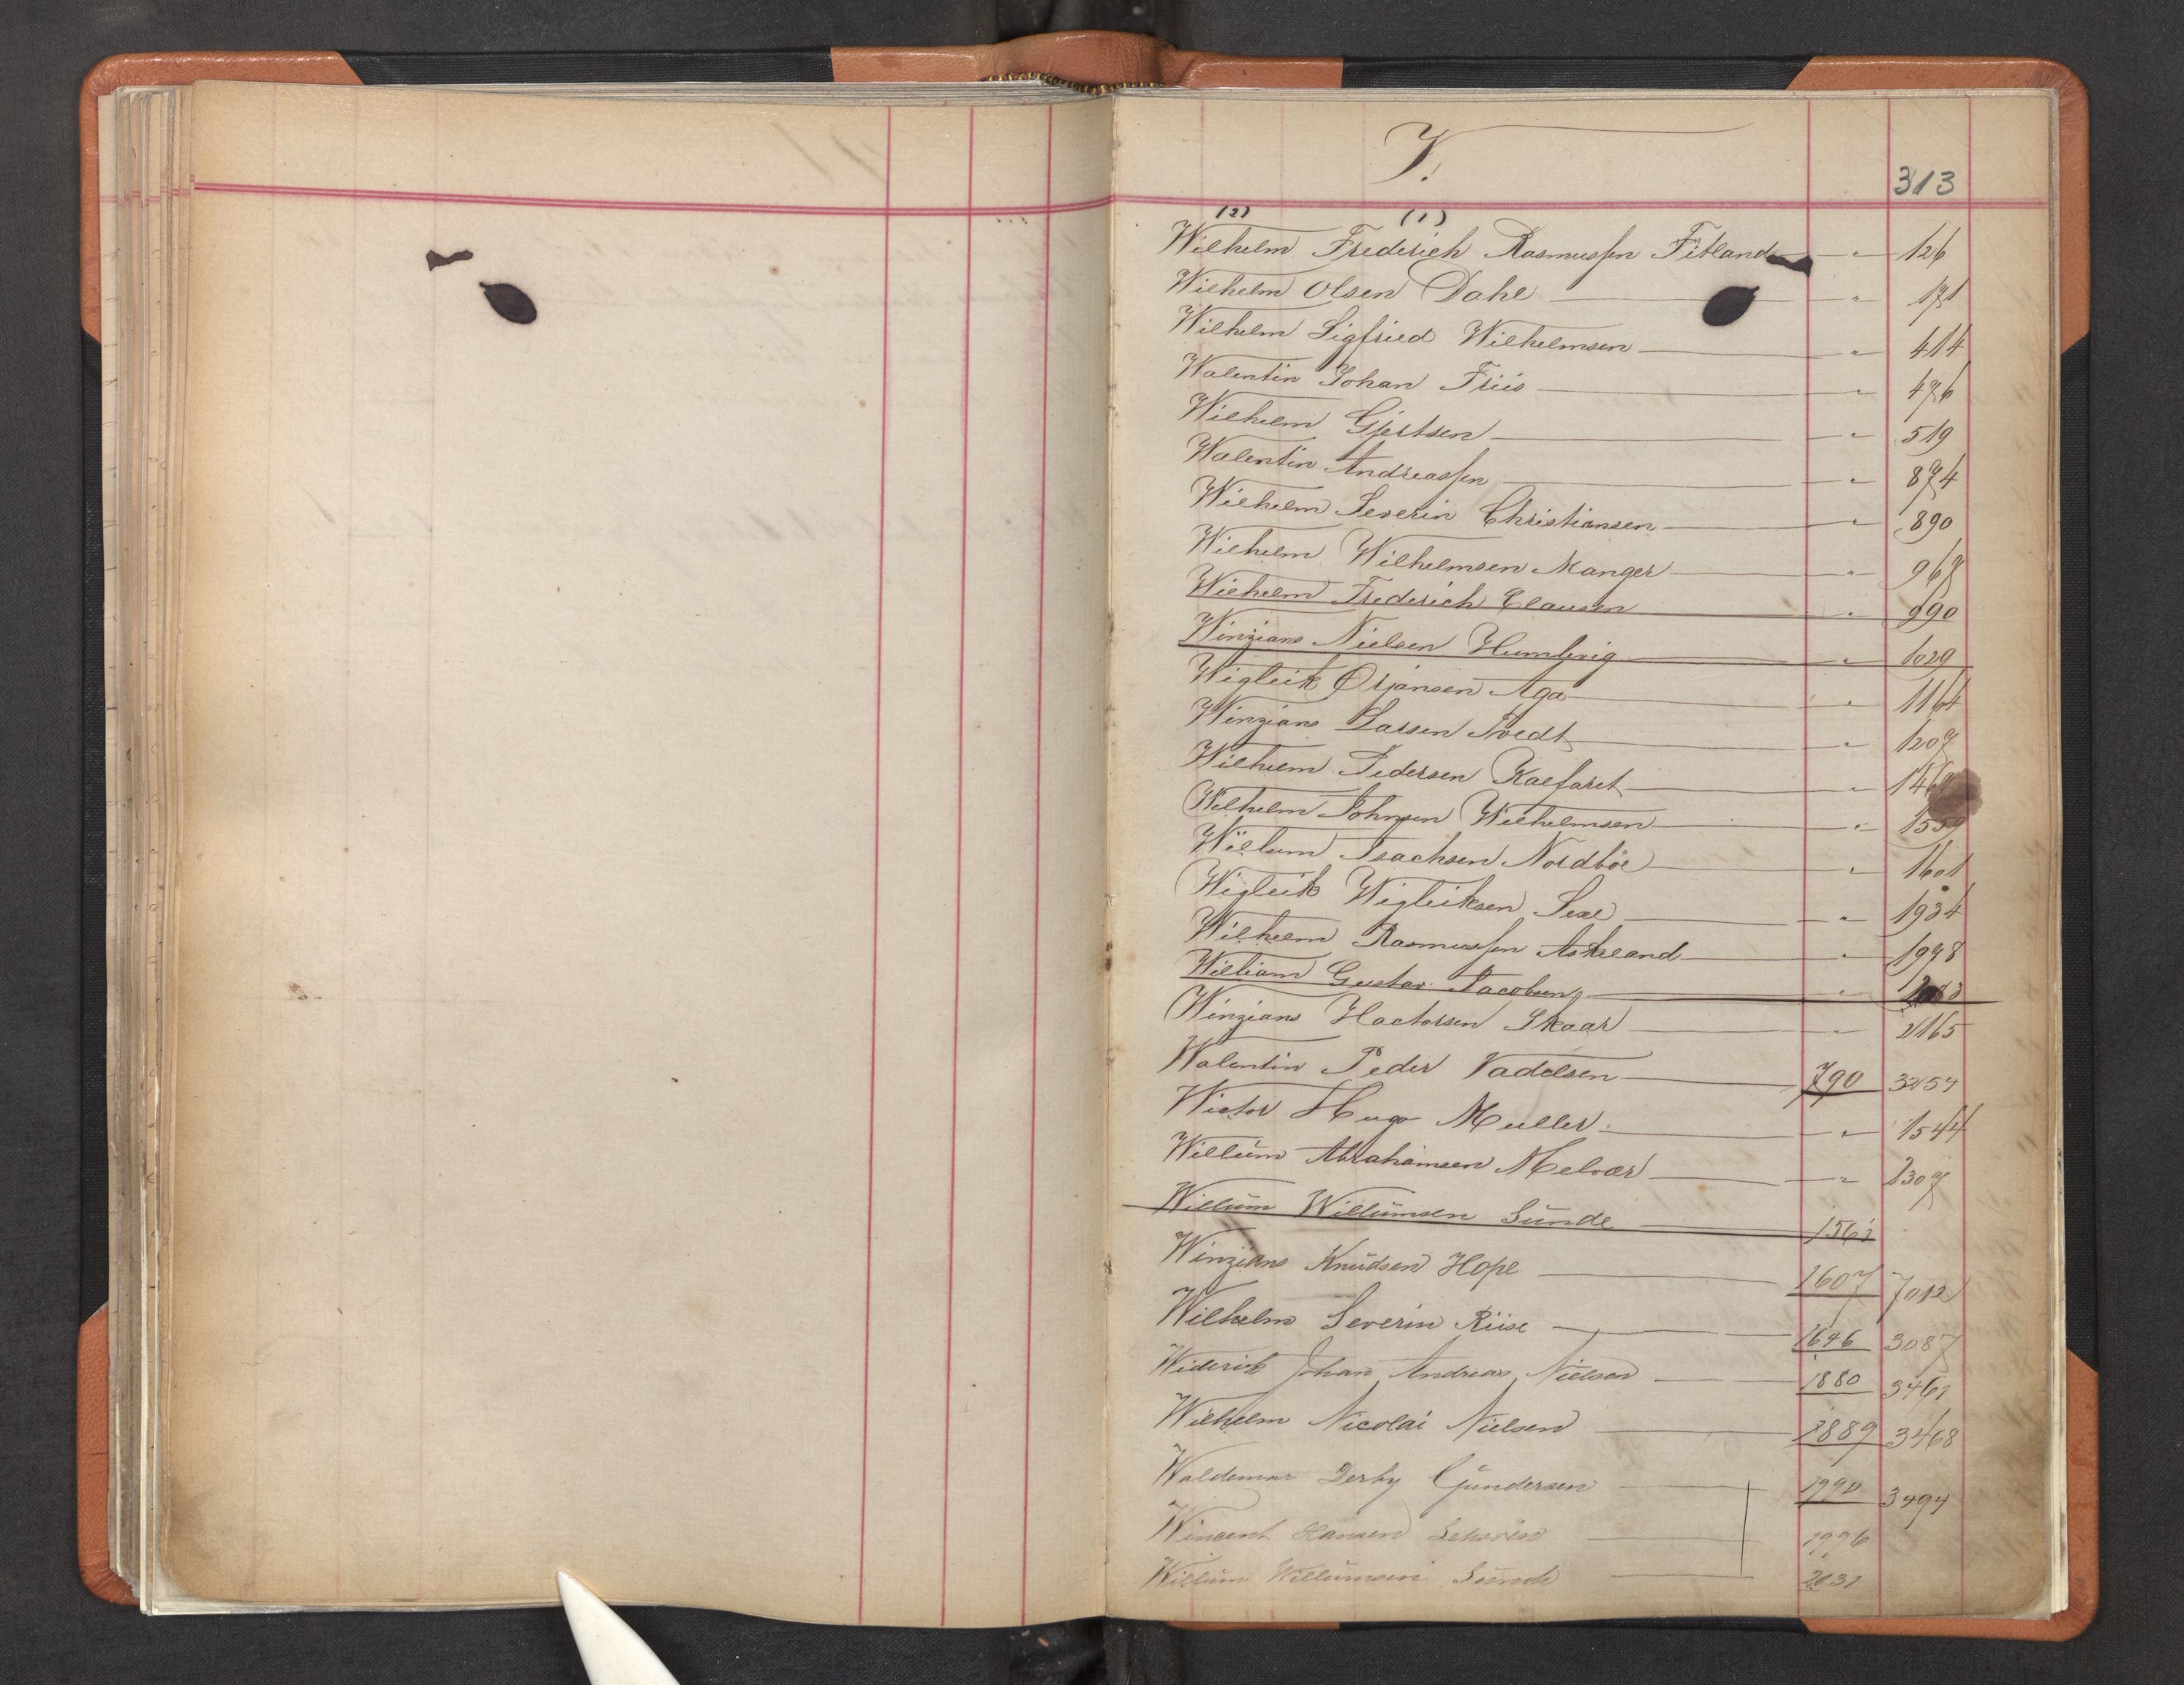 V.
313
(2) (1)
Wilhelm Frederich Rasmussen Fitland " 126
Wilhelm Olsen Dahl " 171
Wilhelm Sigfried Wilhelmsen " 414
Walentin Johan Friis " 476
Wilhelm Gjertsen " 519
Walentin Andreassen " 874
Wilhelm Severin Christiansen " 890
Wilhelm Wilhelmsen Manger " 967
Wilhelm Frederich Clausen " 990
Winzians Nielsen Humlevig " 1029
Wigleik Ørjansen Aga " 1164
Winzians Larsen Tvedt " 1207
Wilhelm Pedersen Kalfaret "
Wilhelm Johnsen Wilhelmsen " 1559
Willum Isachsen Nordböe " 1601
Wigleik Wigleiksen Sexe " 1934
Wilhelm Rasmussen Askeland " 1998
William Gustav Jacobsen "
Winzians Hactorsen Skaar " 2165
Walentin Peder Vadelsen 790 3257
Wictor Hugo Muller " 1544
Willum Abrahamsen Melvær " 2307
Willum Willumsen Sunde 1563
Winzians Knudsen Hope 1607 7012
Wilhelm Severin Riise 1646 3087
Widerick Johan Andreas Nielsen 1880 3461
Wilhelm Nicolai Nielsen 1889 3468
Waldemar Derby Gundersen 1990 3494
Wincent Hansen 1996
Willum Willumsen Sunde 2031